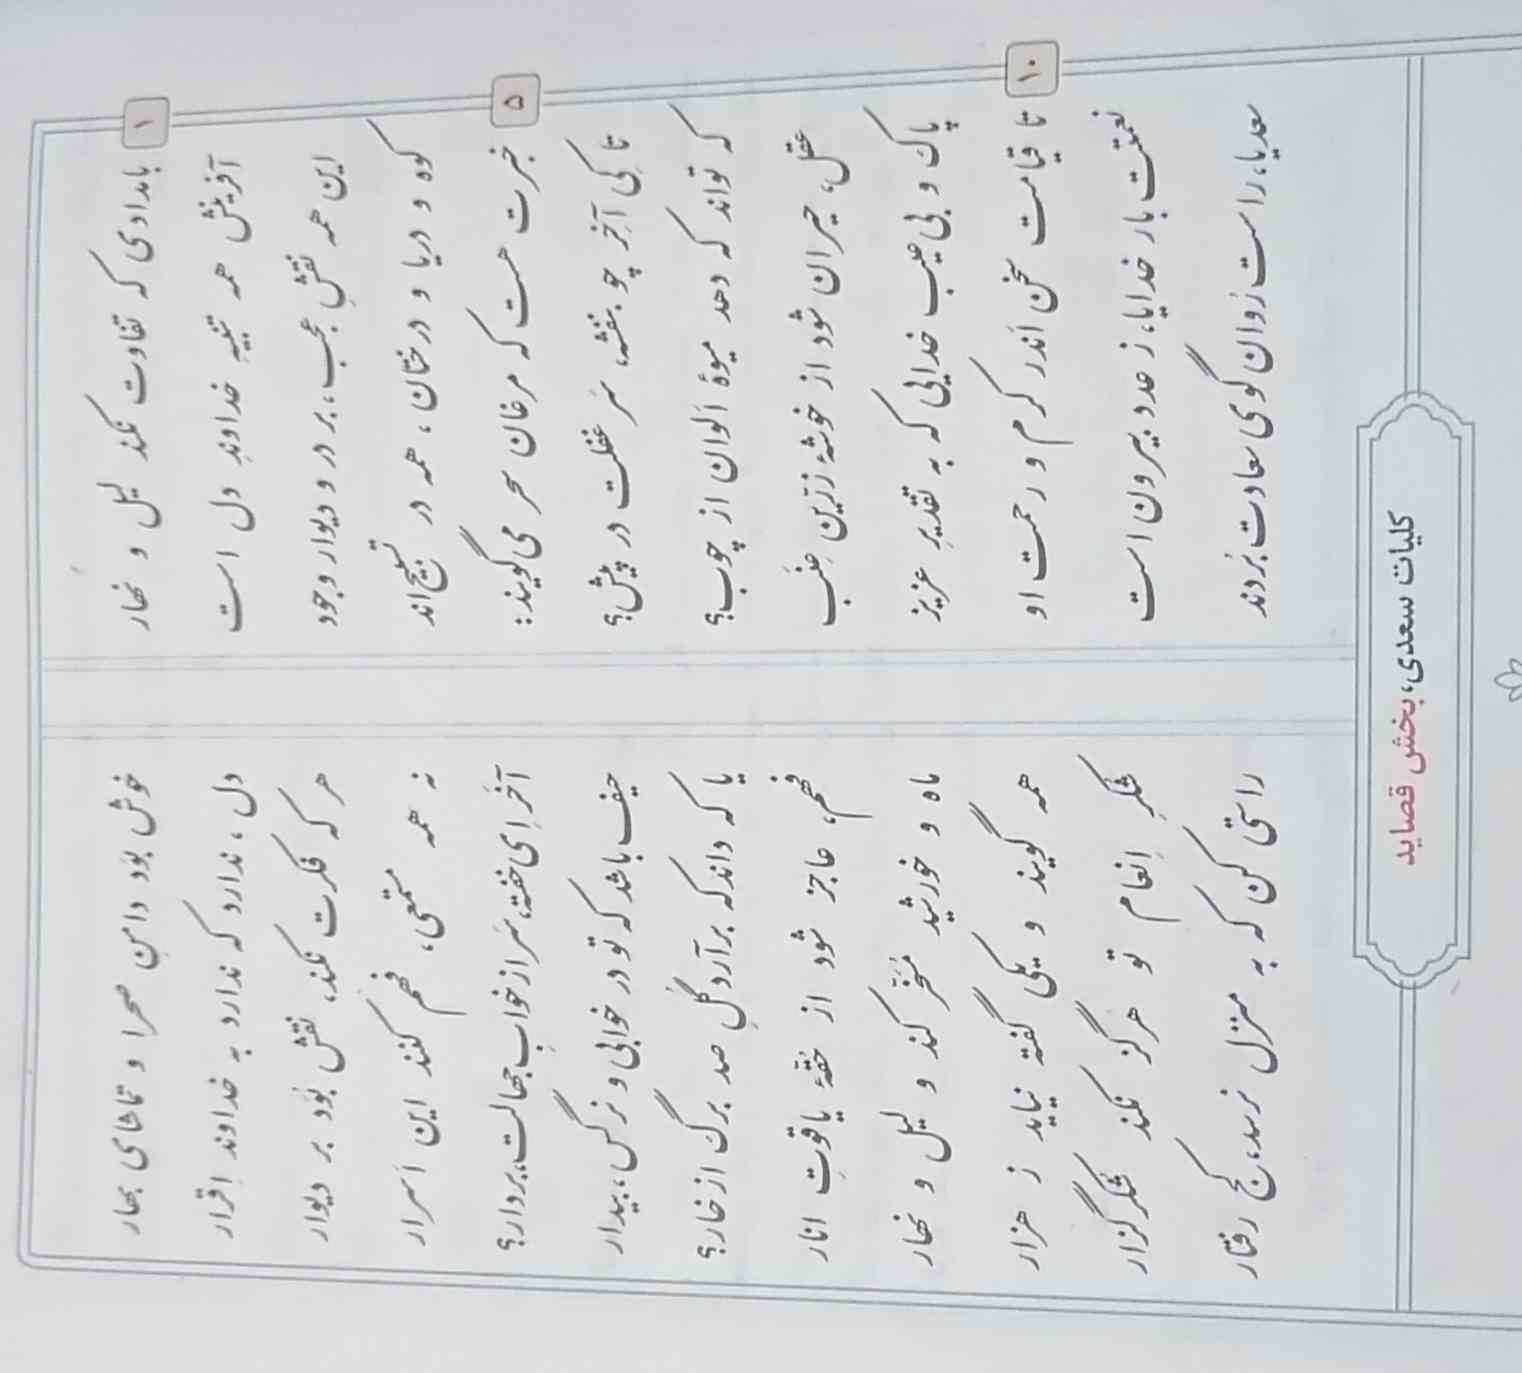 ۱
بامدادی که تفاوت نکند لیل و نهار
خوش بُوَد دامنِ صحرا و تماشای بهار
آفرینش همه تنبیهِ خداوندِ دل است
دل، ندارد که ندارد به خداوند اِقرار
این همه نقشِ عجب، بر در و دیوار وجود
هر که فکرت نکند، نقش بُوَد بر دیوار
کوه و دریا و درختان، همه در تسبیح‌اند
نه همه مستمعی، فهم کنند این اَسرار
۵
خبرت هست که مرغان سحر می‌گویند:
آخَر اِی خفته، سَر از خوابِ جهالت، بردار؟
تا کی آخِر چو بنفشه، سَرِ غفلت در پیش؟
حیف باشد که تو در خوابی و نرگس، بیدار
که تواند که دهد میوهٔ اَلوان از چوب؟
یا که داند که برآرد گُلِ صد برگ از خار؟
عقل، حیران شود از خوشهٔ زرّینِ عِنَب
فهم، عاجز شود از حُقّهٔ یاقوتِ انار
پاک و بی‌عیب خدایی که به تقدیرِ عزیز
ماه و خورشید مُسَخّر کند و لیل و نهار
۱۰
تا قیامت سخن اَندر کرم و رحمت او
همه گویند و یکی گفته نیاید ز هزار
نعمتت بار خدایا، ز عدد بیرون است
شُکرِ اِنعام تو هرگز نکند شُکرگزار
سعدیا، راست رُوان گوی سعادت بُردند
راستی کن که به منزل نرسد، کج رفتار
کلیات سعدی، بخش قصاید